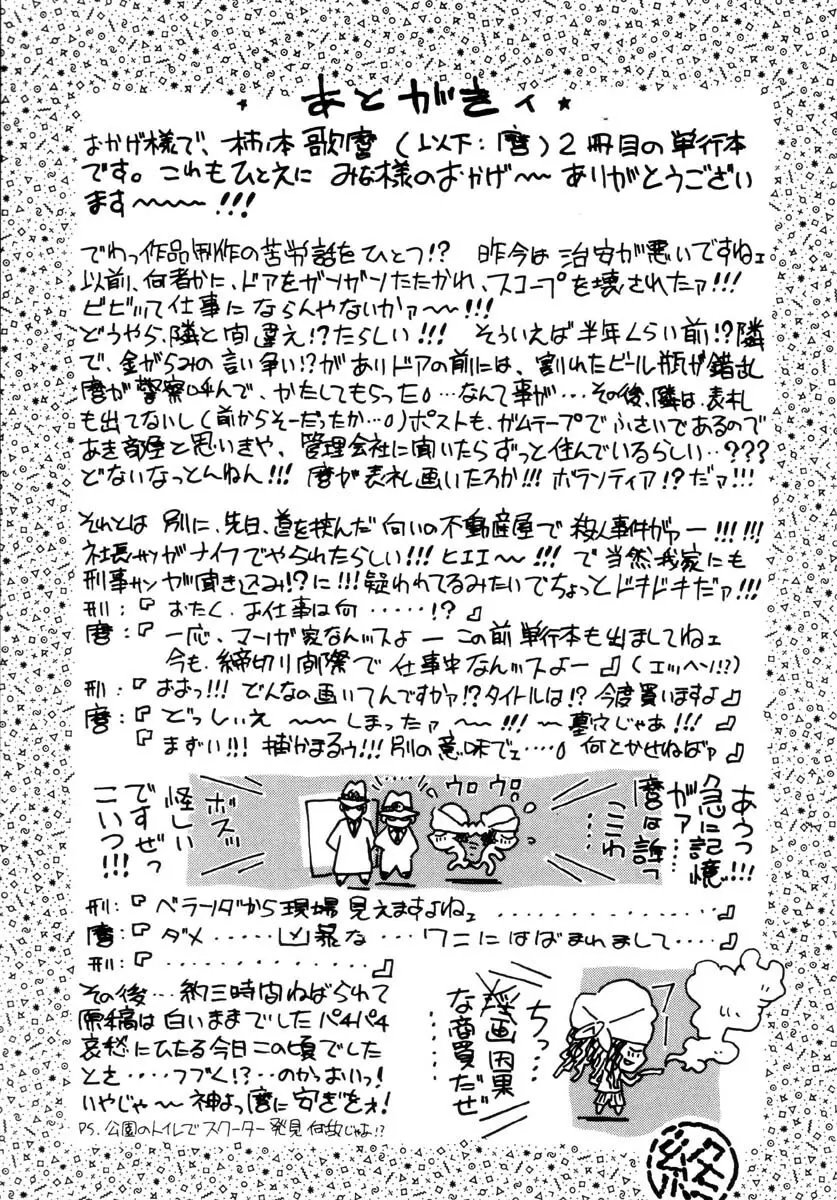 あとがきィ
おかげ様で、柿ノ本歌麿(以下:麿)2冊目の単行本
です。これもひとえに みな様のおかげ〜〜ありがとうござい
ます〜〜〜!!!
でわっ作品制作の苦労話をひとつ!? 昨今は治安が悪いですねェ
以前、何者かに、ドアをガンガンたたかれ、スコープを壊されたァ!!!
ビビッて仕事にならんやないかァ〜〜!!!
どうやら、隣と間違え!?たらしい!!! そういえば半年くらい前!?隣
で、金がらみの言い争い!?がありドアの前には、割れたビール瓶が錯乱
麿が警察呼んで、かたしてもらった。…なんて事が…その後、隣は、表札
も出てないし(前からそーだったか…。)ポストも、ガムテープでふさいであるので
あき部屋と思いきや、管理会社に聞いたらずっと住んでいるらしい…???
どないなっとんねん!!! 麿が表札画いたろか!!! ボランティア!?だァ!!!
それとは 別に、先日、道を挟んだ向いの不動産屋で殺人事件がァー!!!!!!
社長サンがナイフでやられたらしい!!!ヒエエ〜〜!!!で当然我家にも
刑事サンが聞き込み!?に!!!疑われてるみたいでちょっとドキドキだァ!!!
刑:『 おたく、お仕事は何……!?』
麿:『 一応、マンガ家なんスよー この前単行本も出ましてねェ
今も、締切り間際で仕事中なんッスよー 』(エッヘン!?)
刑:『おおっ!!! どんなの画いてんですかァ!?タイトルは!? 今度買いますよ』
麿:『どっしぃえ 〜〜〜しまったァ 〜〜!!!〜墓穴じゃあ!!!
『まずい!!! 捕かまるゥ!!!別の意味でェ…。何とかせねばァ』
あうっ!!!
急に記憶
がァ……
麿は誰っ
ここわ
ウロウロ
ボスッ
怪しい
ですぜっ
こいつ!!!
刑:『ベランダから現場見えますよねェ…………』
麿:『ダメ……凶暴な…ワニにはばまれまして…。』
刑:『…………』
その後…約三時間ねばられて
原稿は白いままでしたパチパチ
哀愁にひたる今日この頃でした
とさ…つづく!?…のかっおいっ!
いやじゃ〜神よっ麿に安ぎをェ!
PS. 公園のトイレでスクーター発見 何故じゃぁ!?
フー
ちっ…
淫画因果
な商買だぜ
……